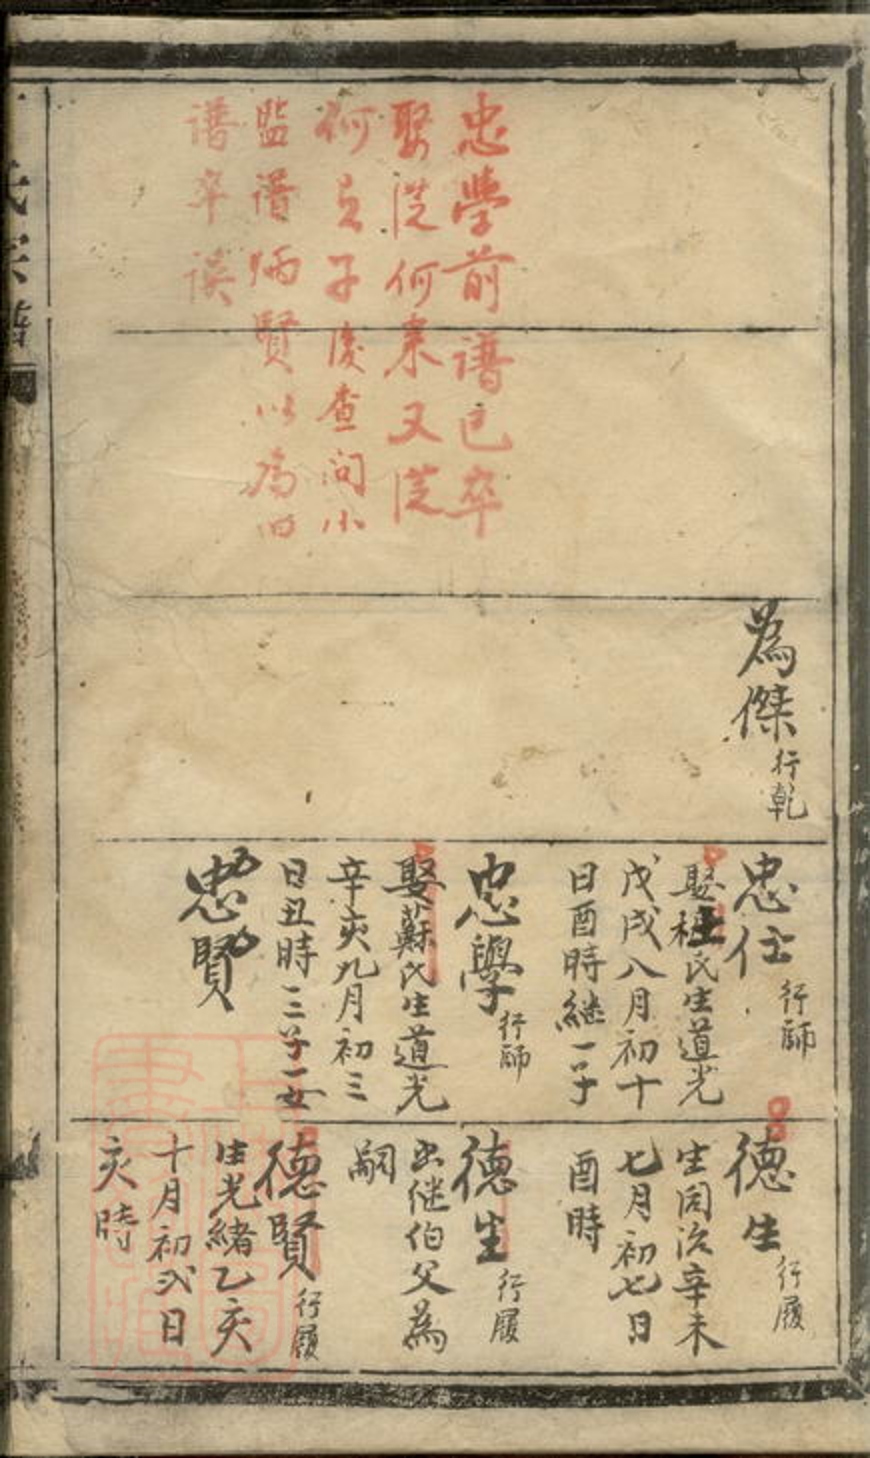 忠學前谱已卒
娶从何来又从
何立子後查问小
監谱炳賢以為四
谱卒误
為傑
行乾
忠仕
行師
娶桂氏生道光
戊戌八月初十
日酉時継一子
忠學
行師
娶蘇氏生道光
辛亥九月初三
日丑時三子一女
忠賢
德生
行履
生同治辛未
七月初七日
酉時
德生
行履
出继伯父為
嗣
德賢
行履
生光緒乙亥
十月初弍日
亥時
氏宗譜